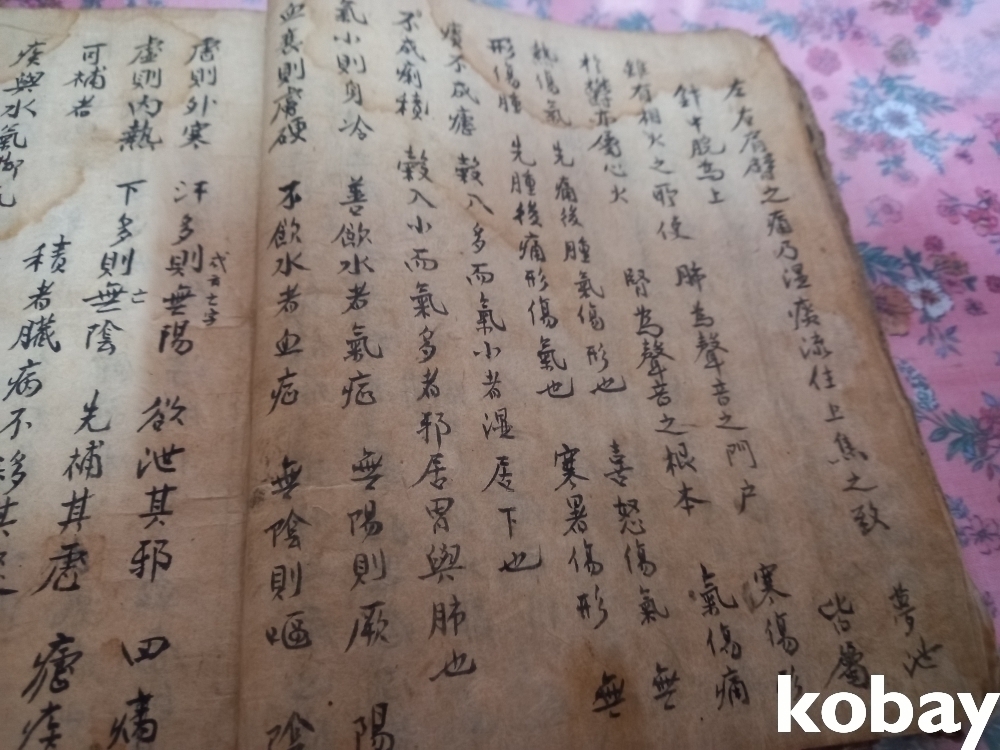 左右肩臂之痛乃湿痰流住上焦之致 夢泄
針中脘為上 肺為聲音之門户 皆屬
雖有相火之所使 腎為聲音之根本 寒傷形
於欝亦傷心火 氣傷痛
熱傷氣 先痛後腫氣傷形也 喜怒傷氣 無
形傷腫 先腫後痛形傷氣也 寒暑傷形 無
痰不成瘧 穀入多而氣小者湿居下也
不成痢積 穀入小而氣多者邪居胃與肺也
氣小則身冷 善飲水者氣症 無陽則厥 陽
血衰則膚硬 不飲水者血症 無陰則嘔 陰
虚則外寒 汗多則無陽 欲泄其邪 四
亡
虚則內熱 下多則無陰 先補其虚
亡
可補者 積者臟病不移其
痰與水氣
kobay